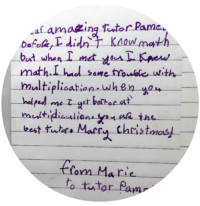 amazing tutor Pame
before, I didn't know math
but when I met you I Knew
math. I had some trouble with
multiplication. when you
helped me I got better at
multidicalion. you are the
best tutor. Marry Christmas!
from Marie
to tutor Pame